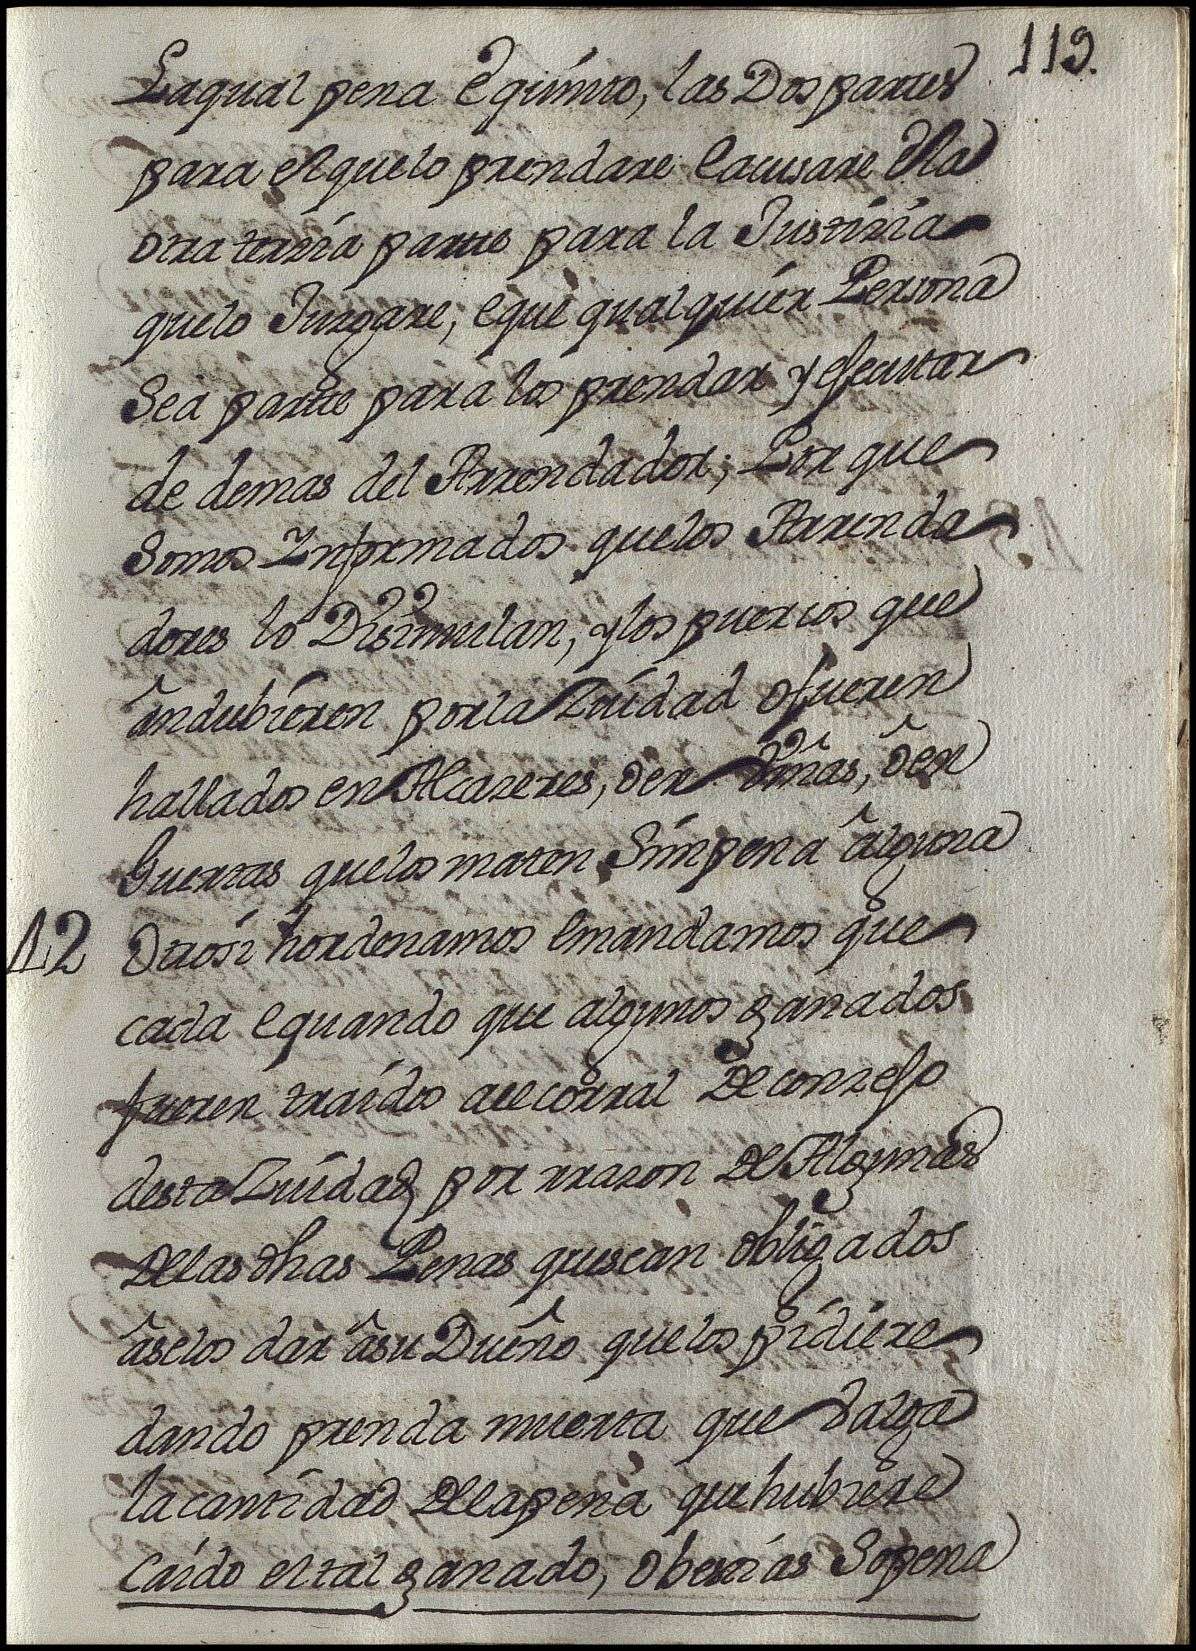 119.
Laqual pena equinto, las Dos partes
para el quelo prendare eacusare ela
otra terzia parte para la Justizia
quelo Juzgare; eque qualquier Persona
Sea parte para los prendar y efecutar
de demas del Arrendador; Por que
Somos Informados quelos Arrenda
dores lo Disimulan, y los puercos que
ândubieren por la Ziudad ofueren
hallados en Alcazeres, oen Viñas, ôen
Guertas quelos maten Sin pena âlguna
12 Otrosi hordenamos emandamos que
cada equando que algunos ganados
fueren traidos aecorral De conzejo
desta Ziudad por rrazon De Algunas
Delas dhas Penas quesean obligados
âselos dar âsu Dueño quelos pidiere
dando prenda muerta que Valga
lacantidad Delapena que hubiere
Caido el tal ganado, obestias Sopena